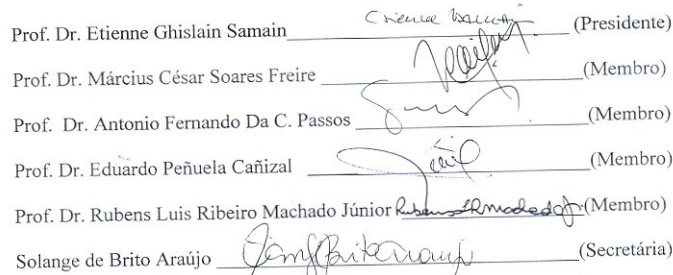 Prof. Dr. Etienne Ghislain Samain (Presidente)
Prof. Dr. Március César Soares Freire (Membro)
Prof. Dr. Antonio Fernando Da C. Passos (Membro)
Prof. Dr. Eduardo Peñuela Cañizal (Membro)
Prof. Dr. Rubens Luis Ribeiro Machado Júnior Rubens LR Machado Jr. (Membro)
Solange de Brito Araújo (Secretária)